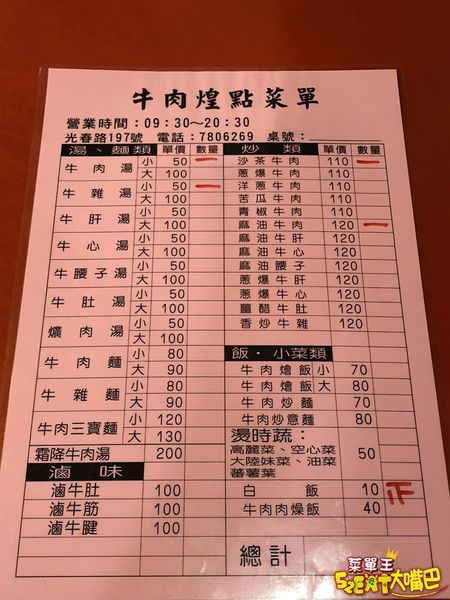 牛肉煌點菜單
營業時間：09:30～20:30
光春路197號 電話：7806269 桌號：
湯、麵類 單價 數量
牛肉湯 小 50 一
大 100
牛雜湯 小 50 一
大 100
牛肝湯 小 50
大 100
牛心湯 小 50
大 100
牛腰子湯 小 50
大 100
牛肚湯 小 50
大 100
爌肉湯 小 50
大 100
牛肉麵 小 80
大 90
牛雜麵 小 80
大 90
牛肉三寶麵 小 120
大 130
霜降牛肉湯 200
滷味
滷牛肚 100
滷牛筋 100
滷牛腱 100
炒類 單價 數量
沙茶牛肉 110 一
蔥爆牛肉 110
洋蔥牛肉 110
苦瓜牛肉 110
青椒牛肉 110
麻油牛肉 120 一
麻油牛肝 120
麻油牛心 120
麻油腰子 120
蔥爆牛肝 120
蔥爆牛心 120
薑醋牛肚 120
香炒牛雜 120
飯・小菜類
牛肉燴飯 小 70
牛肉燴飯 大 80
牛肉炒麵 70
牛肉炒意麵 80
燙時蔬：
高麗菜、空心菜
大陸妹菜、油菜 50
蕃薯葉
白飯 10 正
牛肉肉燥飯 40
總計
菜單王
SZEXT大嘴巴